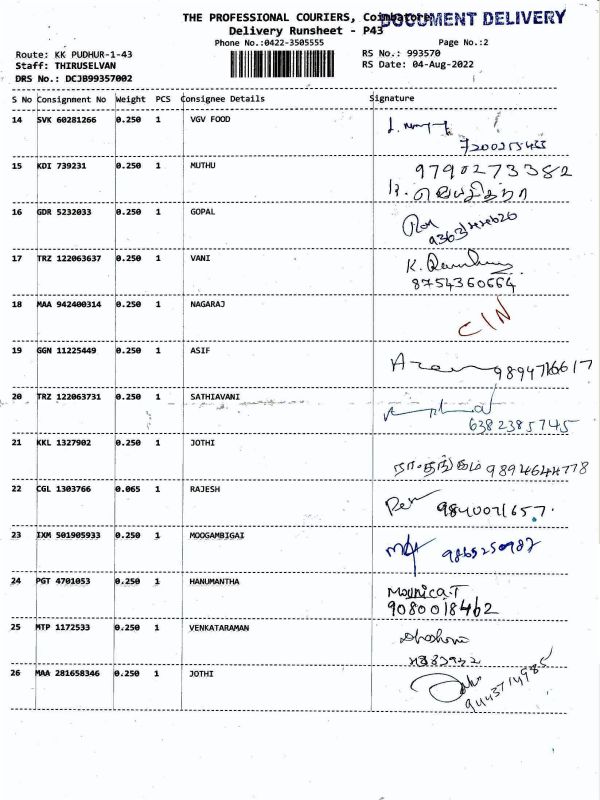 THE PROFESSIONAL COURIERS, Coimbatore
DOCUMENT DELIVERY
Delivery Runsheet - P43
Phone No.:0422-3505555
Page No.:2
Route: KK PUDHUR-1-43
RS No.: 993570
Staff: THIRUSELVAN
RS Date: 04-Aug-2022
DRS No.: DCJB99357002
S No Consignment No Weight PCS Consignee Details Signature
14 SVK 60281266 0.250 1 VGV FOOD
15 KDI 739231 0.250 1 MUTHU 9790273382
16 GDR 5232033 0.250 1 GOPAL
17 TRZ 122063637 0.250 1 VANI
8754360664
18 MAA 942400314 0.250 1 NAGARAJ
C/N
19 GGN 11225449 0.250 1 ASIF
20 TRZ 122063731 0.250 1 SATHIAVANI
6382385745
21 KKL 1327902 0.250 1 JOTHI
9894644778
22 CGL 1303766 0.065 1 RAJESH
9840071657.
23 IXM 501905933 0.250 1 MOOGAMBIGAI
24 PGT 4701053 0.250 1 HANUMANTHA
Mounica.T
9080018462
25 MTP 1172533 0.250 1 VENKATARAMAN
26 MAA 281658346 0.250 1 JOTHI
9443714985